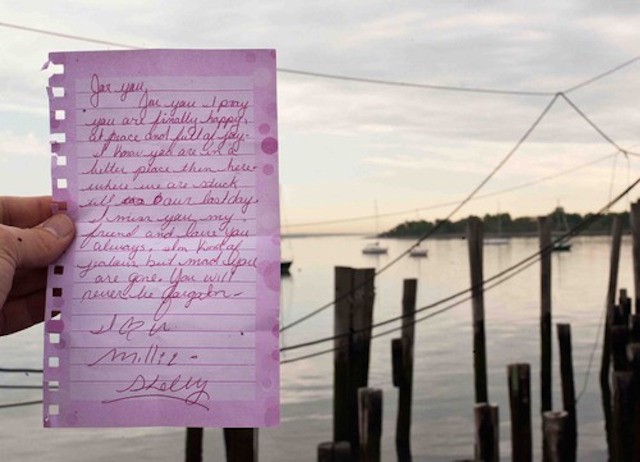 For you,
For you I pray
you are finally happy,
at peace and full of joy.
I know you are in a
better place then here
where we are stuck
till our last day.
I miss you my
friend and love you
always. Im kind of
jealous but mad you
are gone. You will
never be forgoten-
I ♡ U
Millee -
Shelly